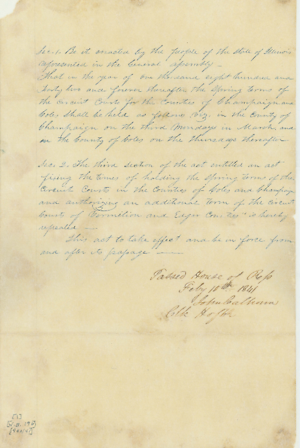 Sec. 1. Be it enacted by the people of the state of Illinois
represented in the General Assembly
That in the year of one thousand eight hundred and
forty two and forever thereafter the Spring terms of
the circuit Court for the Counties of Champaign and
Coles shall be held as follows viz. in the County of
Champaign on the third Mondays in March, and
in the County of Coles on the thursdays thereafter
Sec. 2. The third section of the act entitled an act
fixing the times of holding the Spring term of the
Circuit Courts in the Counties of Coles and Champaign
and authorizing an additional term of the Circuit
Courts of Vermilion and Edgar Counties is hereby
repealed
This act to take effect and be in force from
and after its passage
Passed House of Reps
Feby 10th 1841
John Calhoun
Clk Ho